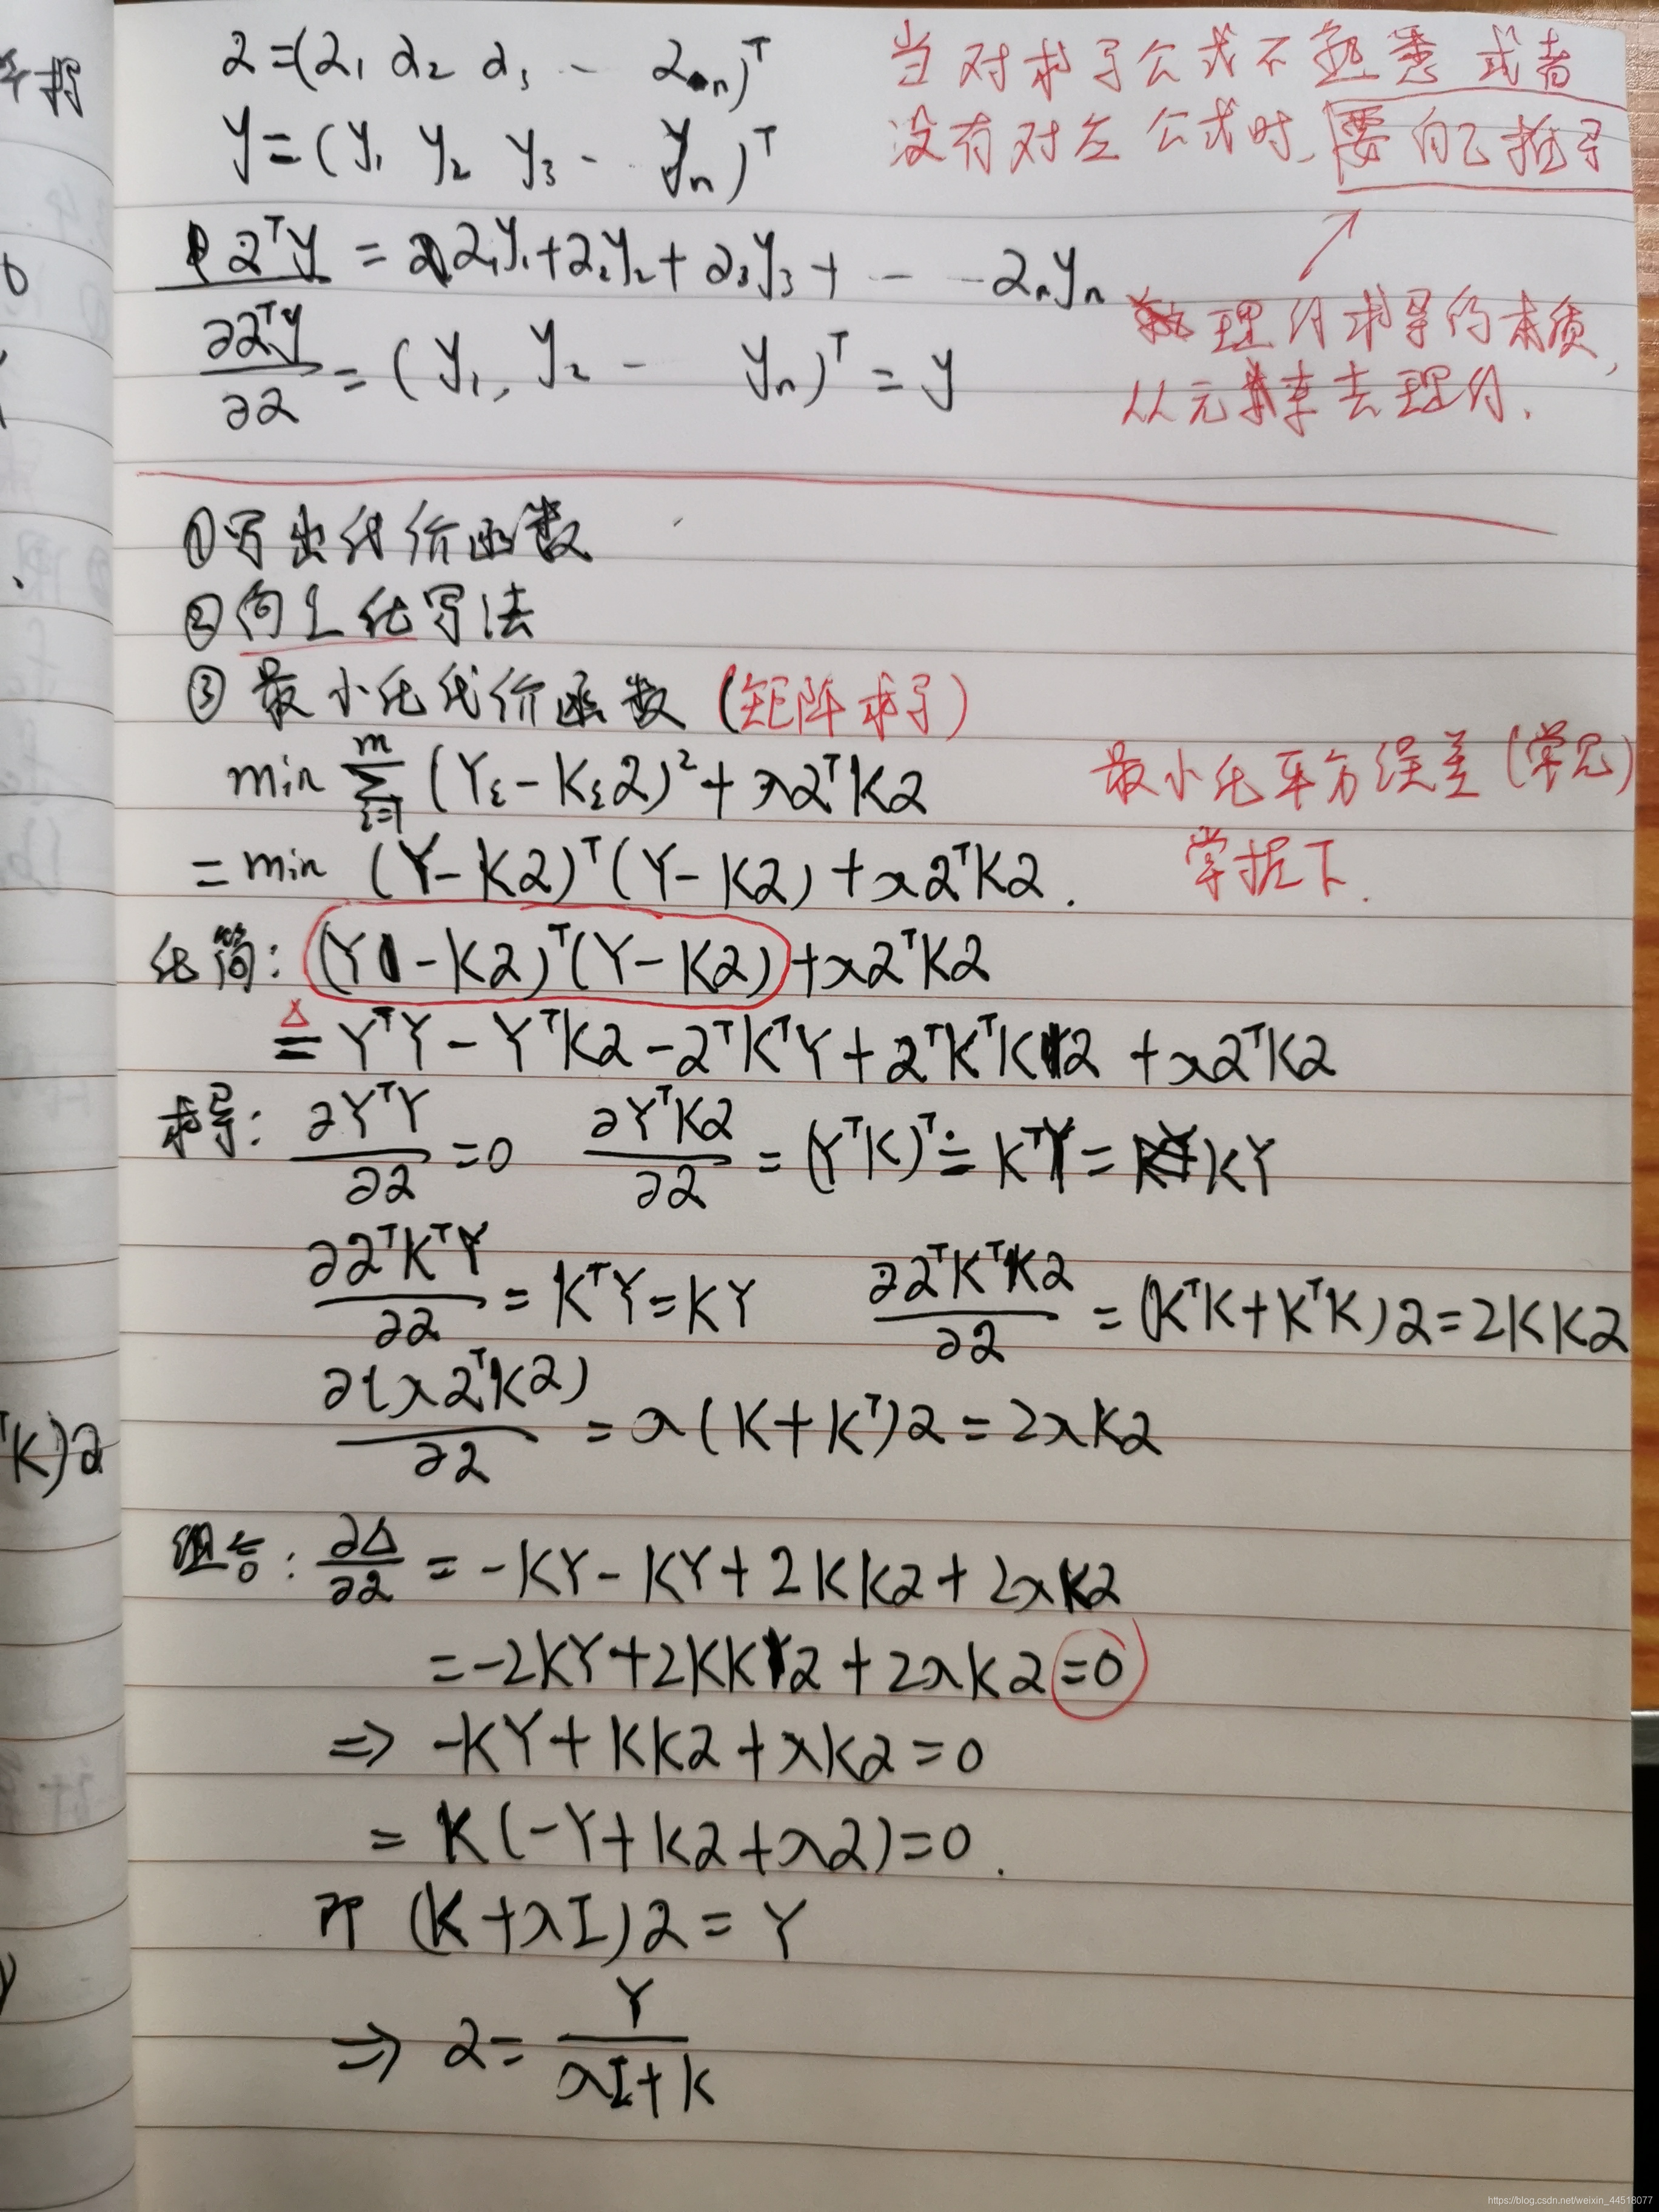 α=(α₁ α₂ α₃ - αₙ)ᵀ
y=(y₁ y₂ y₃ - yₙ)ᵀ
当对求导公式不熟悉或者
没有对应公式时,要自己推导
αᵀy = α₁y₁+α₂y₂+α₃y₃+ - - αₙyₙ
∂αᵀy/∂α = (y₁, y₂ - yₙ)ᵀ = y
理解求导的本质,
从元素去理解.
①写出代价函数
②向量化写法
③最小化代价函数(矩阵求导)
min Σᵢ₌₁ᵐ (Yᵢ-Kᵢα)²+λαᵀKα
=min (Y-Kα)ᵀ(Y-Kα)+λαᵀKα.
最小化平方误差(常见)
掌握下.
化简: (Y-Kα)ᵀ(Y-Kα)+λαᵀKα
Δ
= YᵀY-YᵀKα-αᵀKᵀY+αᵀKᵀKα+λαᵀKα
求导: ∂YᵀY/∂α =0 ∂YᵀKα/∂α = (YᵀK)ᵀ = KᵀY = KY
∂αᵀKᵀY/∂α = KᵀY=KY ∂αᵀKᵀKα/∂α = (KᵀK+KᵀK)α=2KKα
∂(λαᵀKα)/∂α = λ(K+Kᵀ)α=2λKα
K)α
组合: ∂Δ/∂α = -KY-KY+2KKα+2λKα
=-2KY+2KKα+2λKα=0
⇒ -KY+KKα+λKα=0
= K(-Y+Kα+λα)=0.
(K+λI)α=Y
⇒ α= Y/(λI+K)
https://blog.csdn.net/weixin_44518077